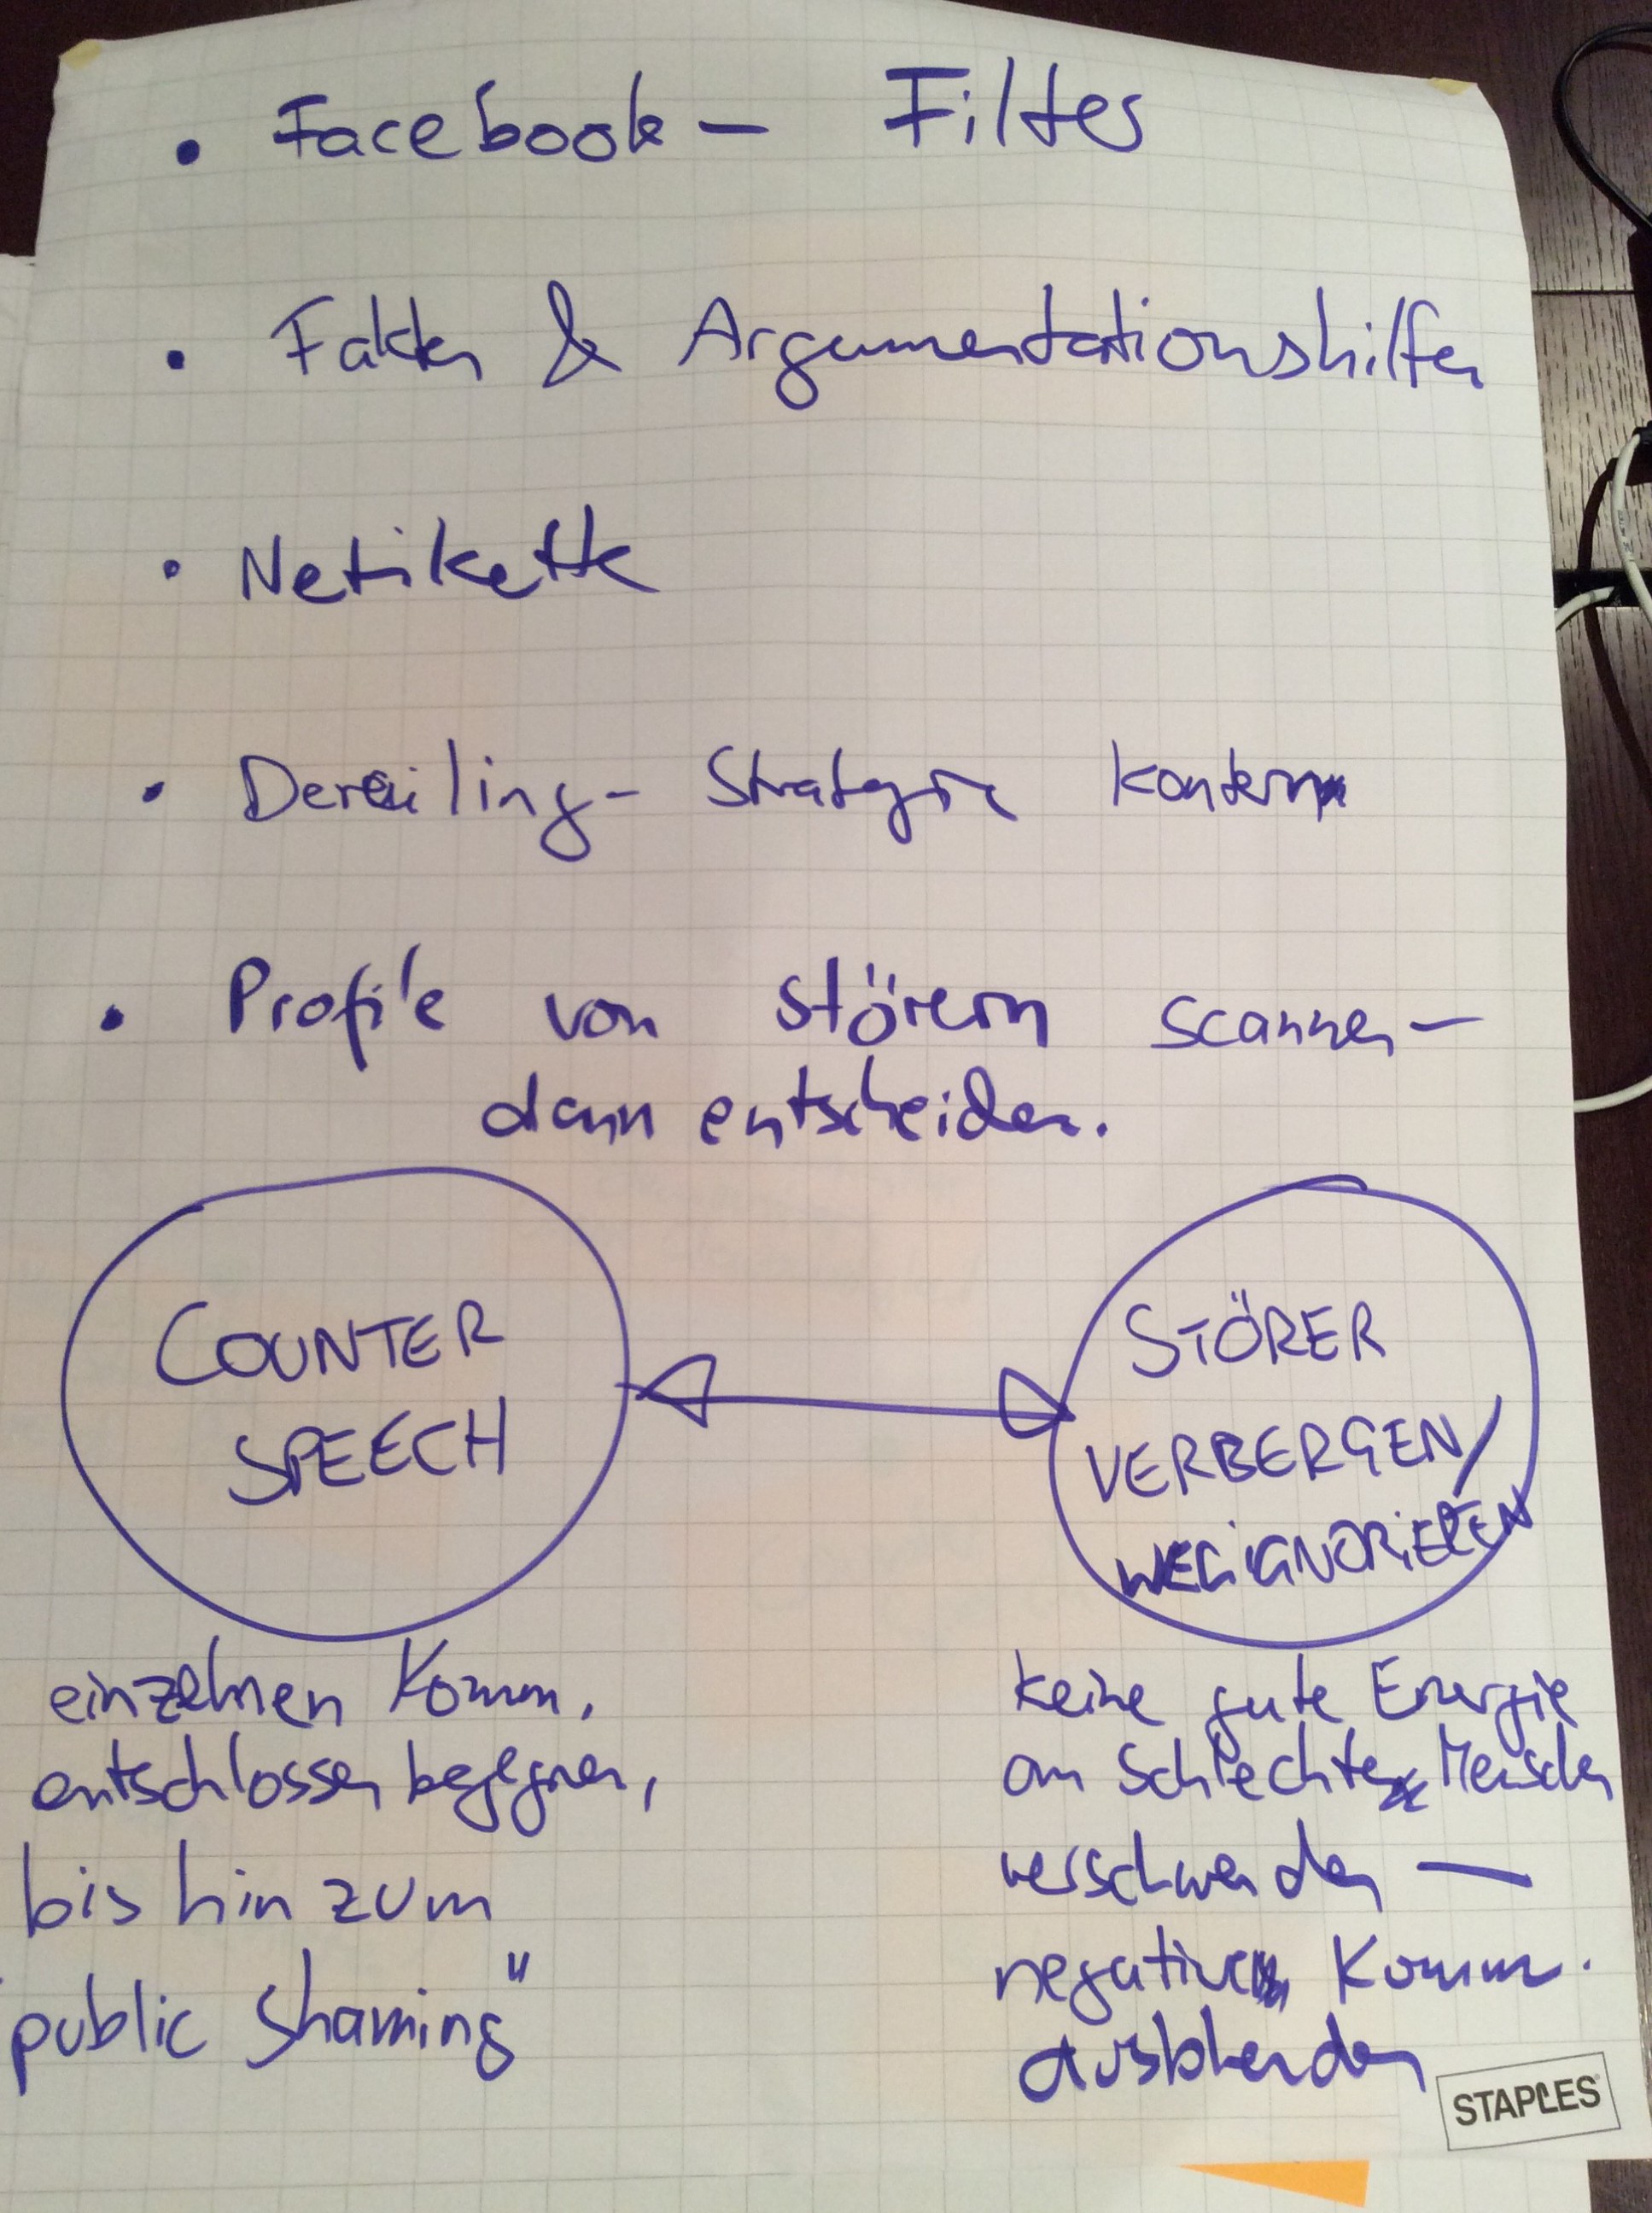 • Facebook – Filter
• Fakten & Argumentationshilfen
• Netikette
• Dereiling- Strategie kontern
• Profile von Störern scannen –
dann entscheiden.
COUNTER
SPEECH
STÖRER
VERBERGEN/
IGNORIEREN
einzelnen Komm.
entschlossen begegnen,
bis hin zum
"public Shaming"
keine gute Energie
an Schlechte Menschen
verschwenden –
negative Komm.
ausblenden
STAPLES